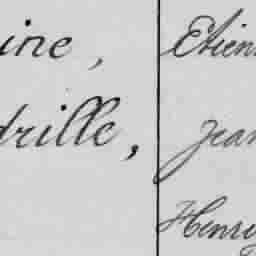 ine,
drille,
Etien
Jean
Henry